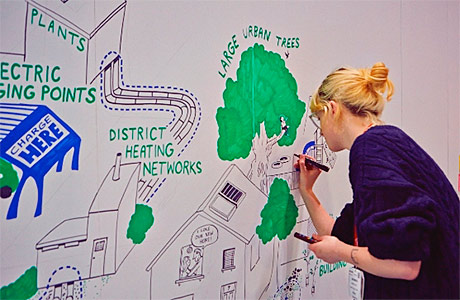 PLANTS
ELECTRIC
GING POINTS
CHARGE
HERE
LARGE URBAN TREES
DISTRICT
HEATING
NETWORKS
I LOVE
OUR NEW
HOME!
BUILDING